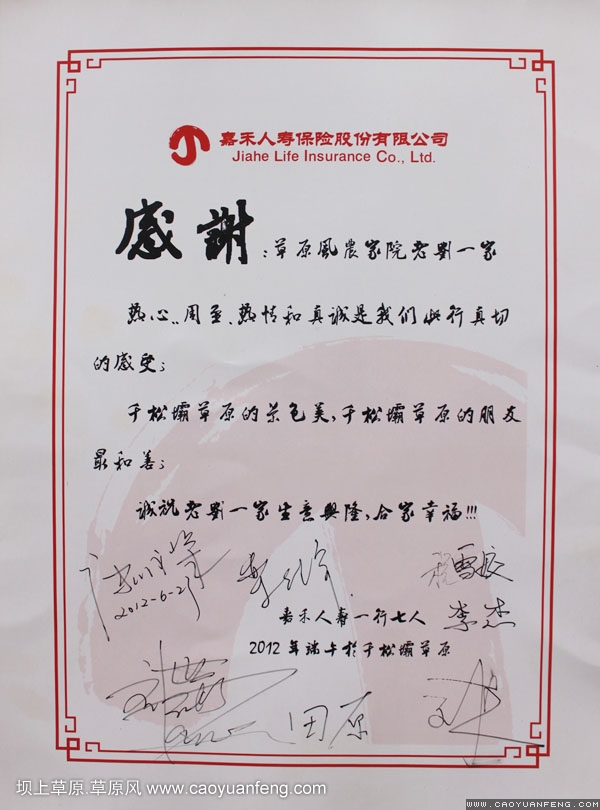 嘉禾人寿保险股份有限公司
Jiahe Life Insurance Co., Ltd.
感謝:草原風農家院老劉一家
热心、周至、热情和真诚是我们此行真切
的感受;
千松壩草原的景色美,千松壩草原的朋友
最和善;
诚祝老劉一家生意興隆,合家幸福!!!
2012-6-21
李杰
嘉禾人寿一行七人
2012年端午於千松壩草原
田原
坝上草原.草原风 www.caoyuanfeng.com
WWW.CAOYUANFENG.COM